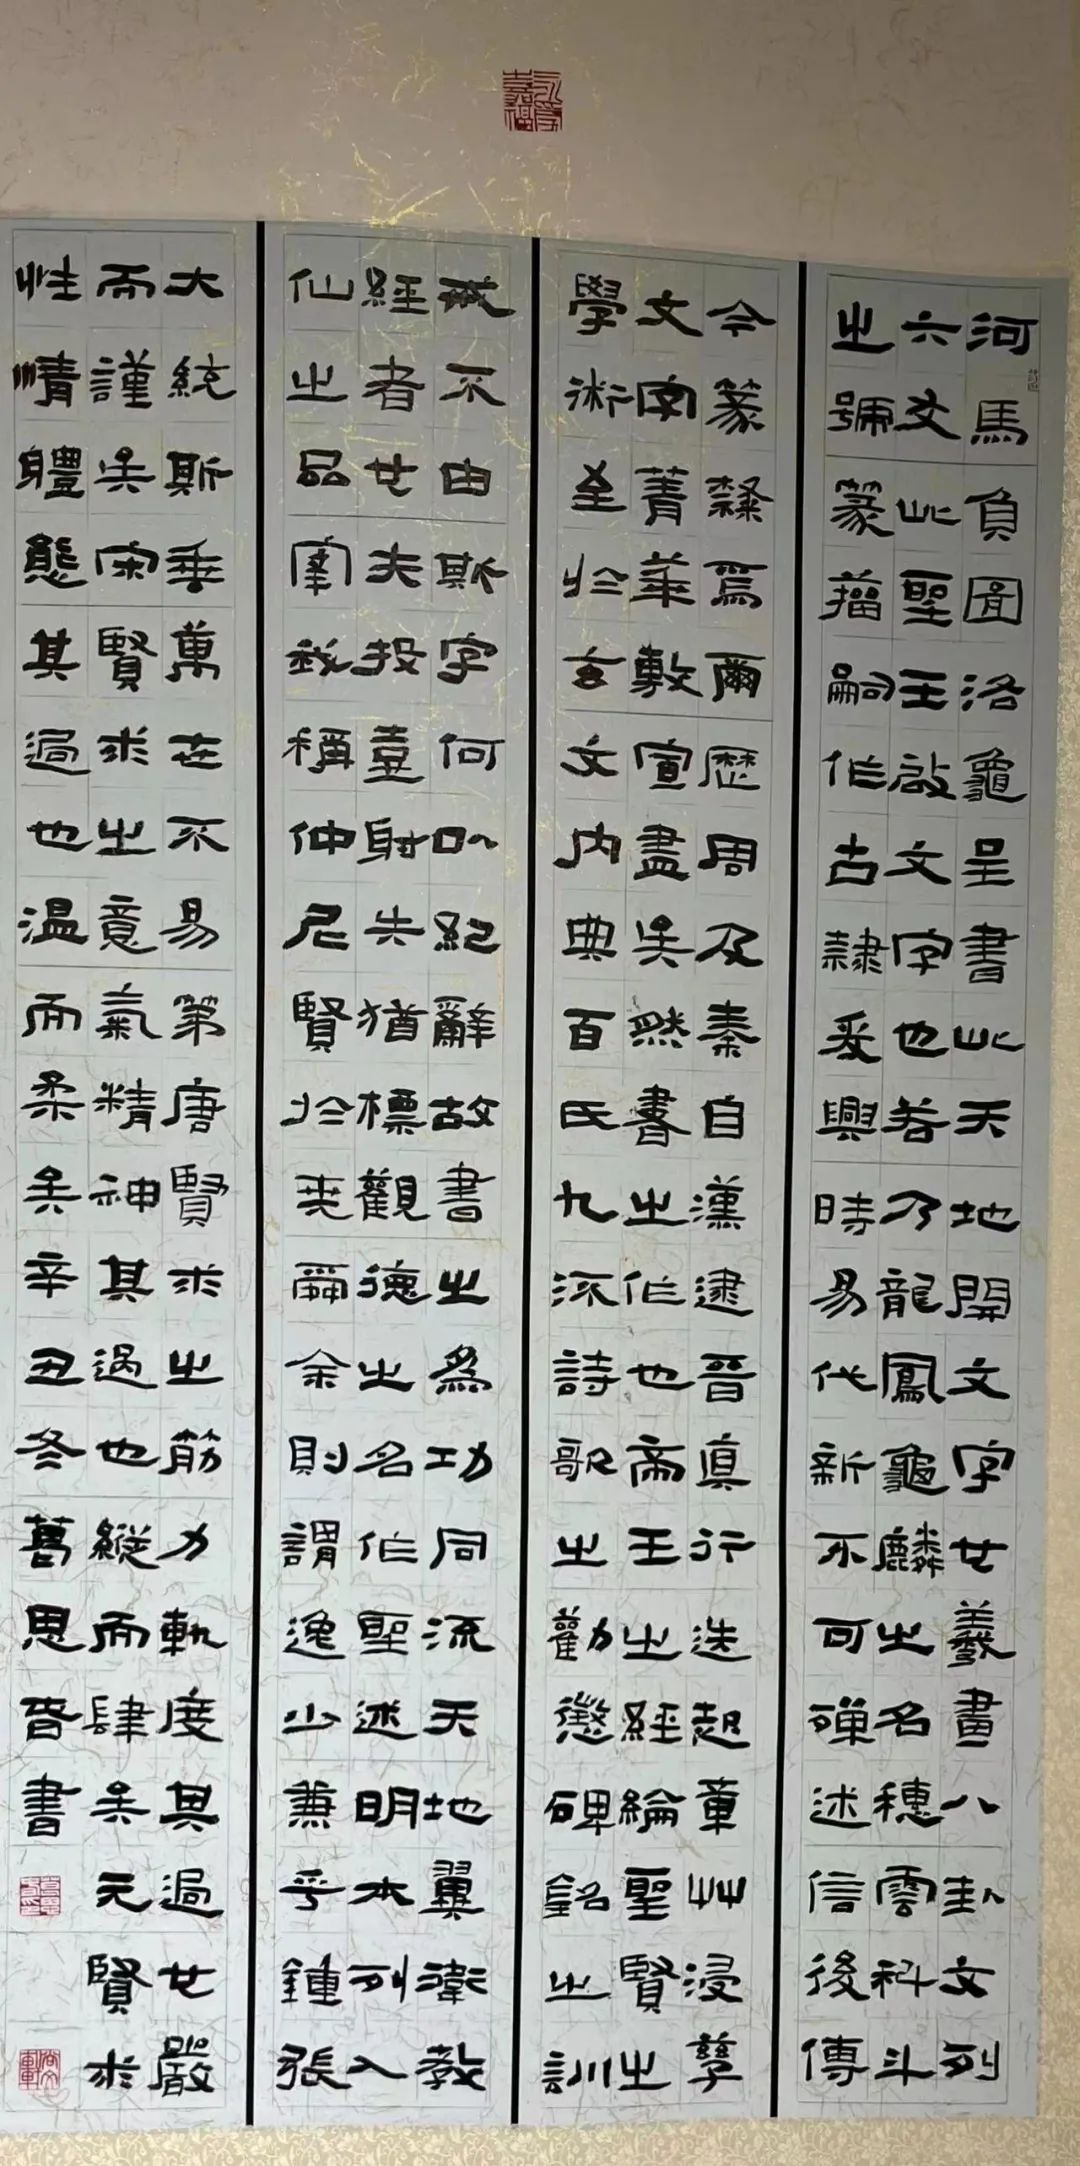 永為嘉福
河馬負圖洛龜呈書此天地開文字也羲畫八卦文列
六爻此聖王啟文字也若乃龍鳳龜麟之名穗雲科斗
之號篆籀嗣作古隸爰興時易代新不可殫述信後傳
今篆隸焉爾歷周及秦自漢逮晉真行迭起章艸浸孳
文字菁華敷宣盡矣然書之作也帝王之經綸聖賢之
學術至於玄文內典百氏九流詩歌之勸懲碑銘之訓
戒不由斯字何以紀辭故書之為功同流天地翼衛教
經者也夫投壺射矢猶標觀德之名作聖述明本列入
仙之品宰我稱仲尼賢於堯舜余則謂逸少兼乎鍾張
大統斯垂萬世不易第唐賢求之筋力軌度其過也嚴
而謹矣宋賢求之意氣精神其過也縱而肆矣元賢求
性情體態其過也温而柔矣辛丑冬葛思書